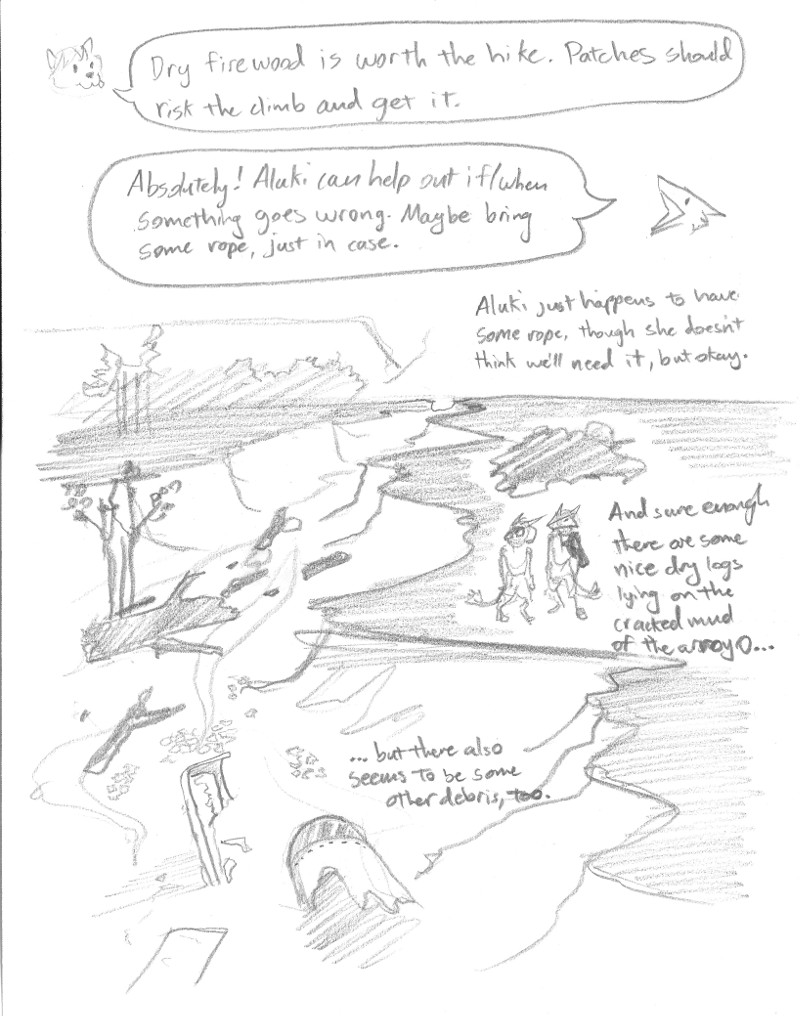 Dry firewood is worth the hike. Patches should
risk the climb and get it.
Absolutely! Aluki can help out if/when
something goes wrong. Maybe bring
some rope, just in case.
Aluki just happens to have
some rope, though she doesn't
think we'll need it, but okay.
And sure enough
there are some
nice dry logs
lying on the
cracked mud
of the arroyo...
... but there also
seems to be some
other debris, too.